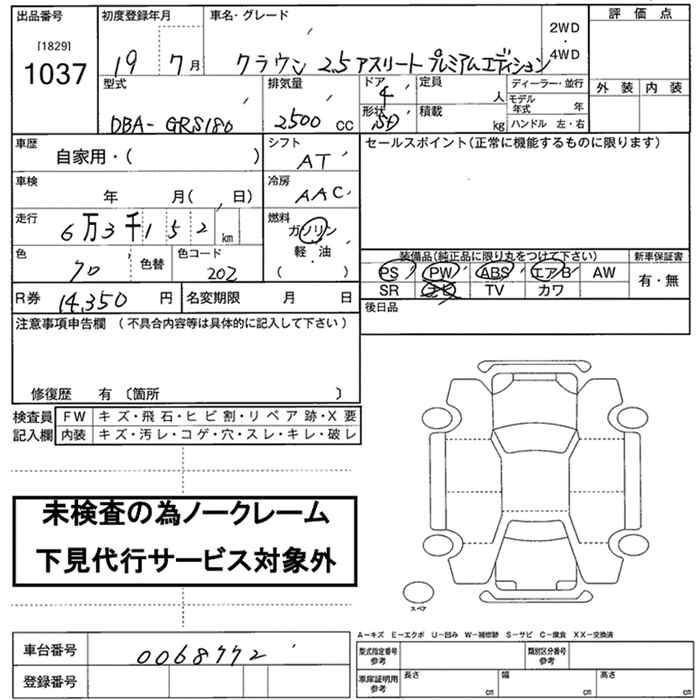 出品番号 初度登録年月 車名・グレード 評価点
[1829] 1037 19 7月 クラウン 2.5 アスリート プレミアムエディション 2WD・4WD
型式 排気量 ドア 定員 ディーラー・並行 外装 内装
DBA-GRS180 2500 cc 4 人 モデル年式 年
形状 SD 積載 kg ハンドル 左・右
車歴 自家用・( ) シフト AT セールスポイント(正常に機能するものに限ります)
車検 年 月( 日) 冷房 AAC
走行 6万3千152km 燃料 ガソリン・軽・油 ( )
色 クロ 色替 色コード 202
装備品(純正品に限り丸をつけて下さい) 新車保証書
PS PW ABS エアB AW 有・無
SR ナビ TV カワ
R券 14,350円 名変期限 月 日 後日品
注意事項申告欄 (不具合内容等は具体的に記入して下さい)
修復歴 有 〔箇所 〕
検査員記入欄 FW キズ・飛石・ヒビ割・リペア跡・X要
内装 キズ・汚レ・コゲ・穴・スレ・キレ・破レ
未検査の為ノークレーム
下見代行サービス対象外
スペア
A-キズ E-エクボ U-凹み W-補修跡 S-サビ C-腐食 XX-交換済
車台番号 0068772 型式指定番号参考 類別区分番号参考
登録番号 車庫証明用参考 長さ cm 幅 cm 高さ cm